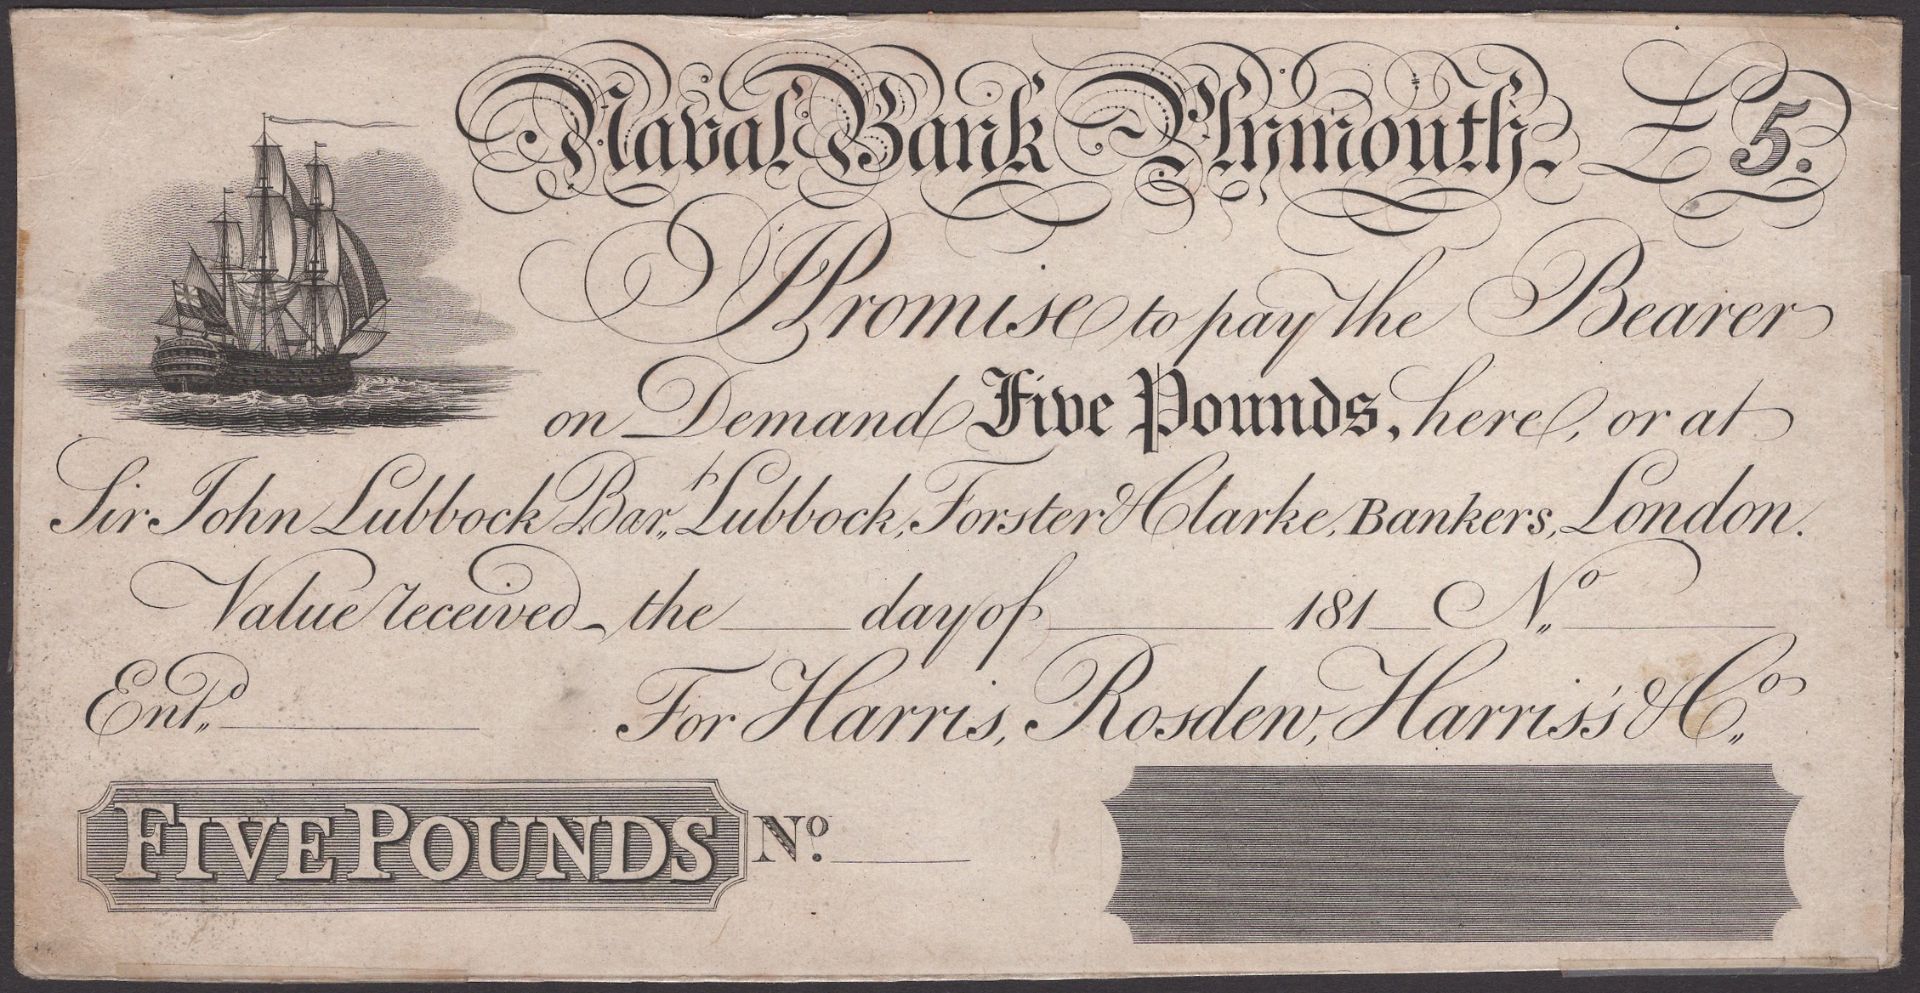 Naval Bank Plymouth. £5.
I Promise to pay the Bearer
on Demand Five Pounds, here, or at
Sir John Lubbock Bar.t Lubbock, Forster & Clarke, Bankers, London.
Value received the ____ day of ____ 181_ No. ____
Ent.d ____ For Harris, Rosdew, Harris's & Co.
FIVE POUNDS No. ____